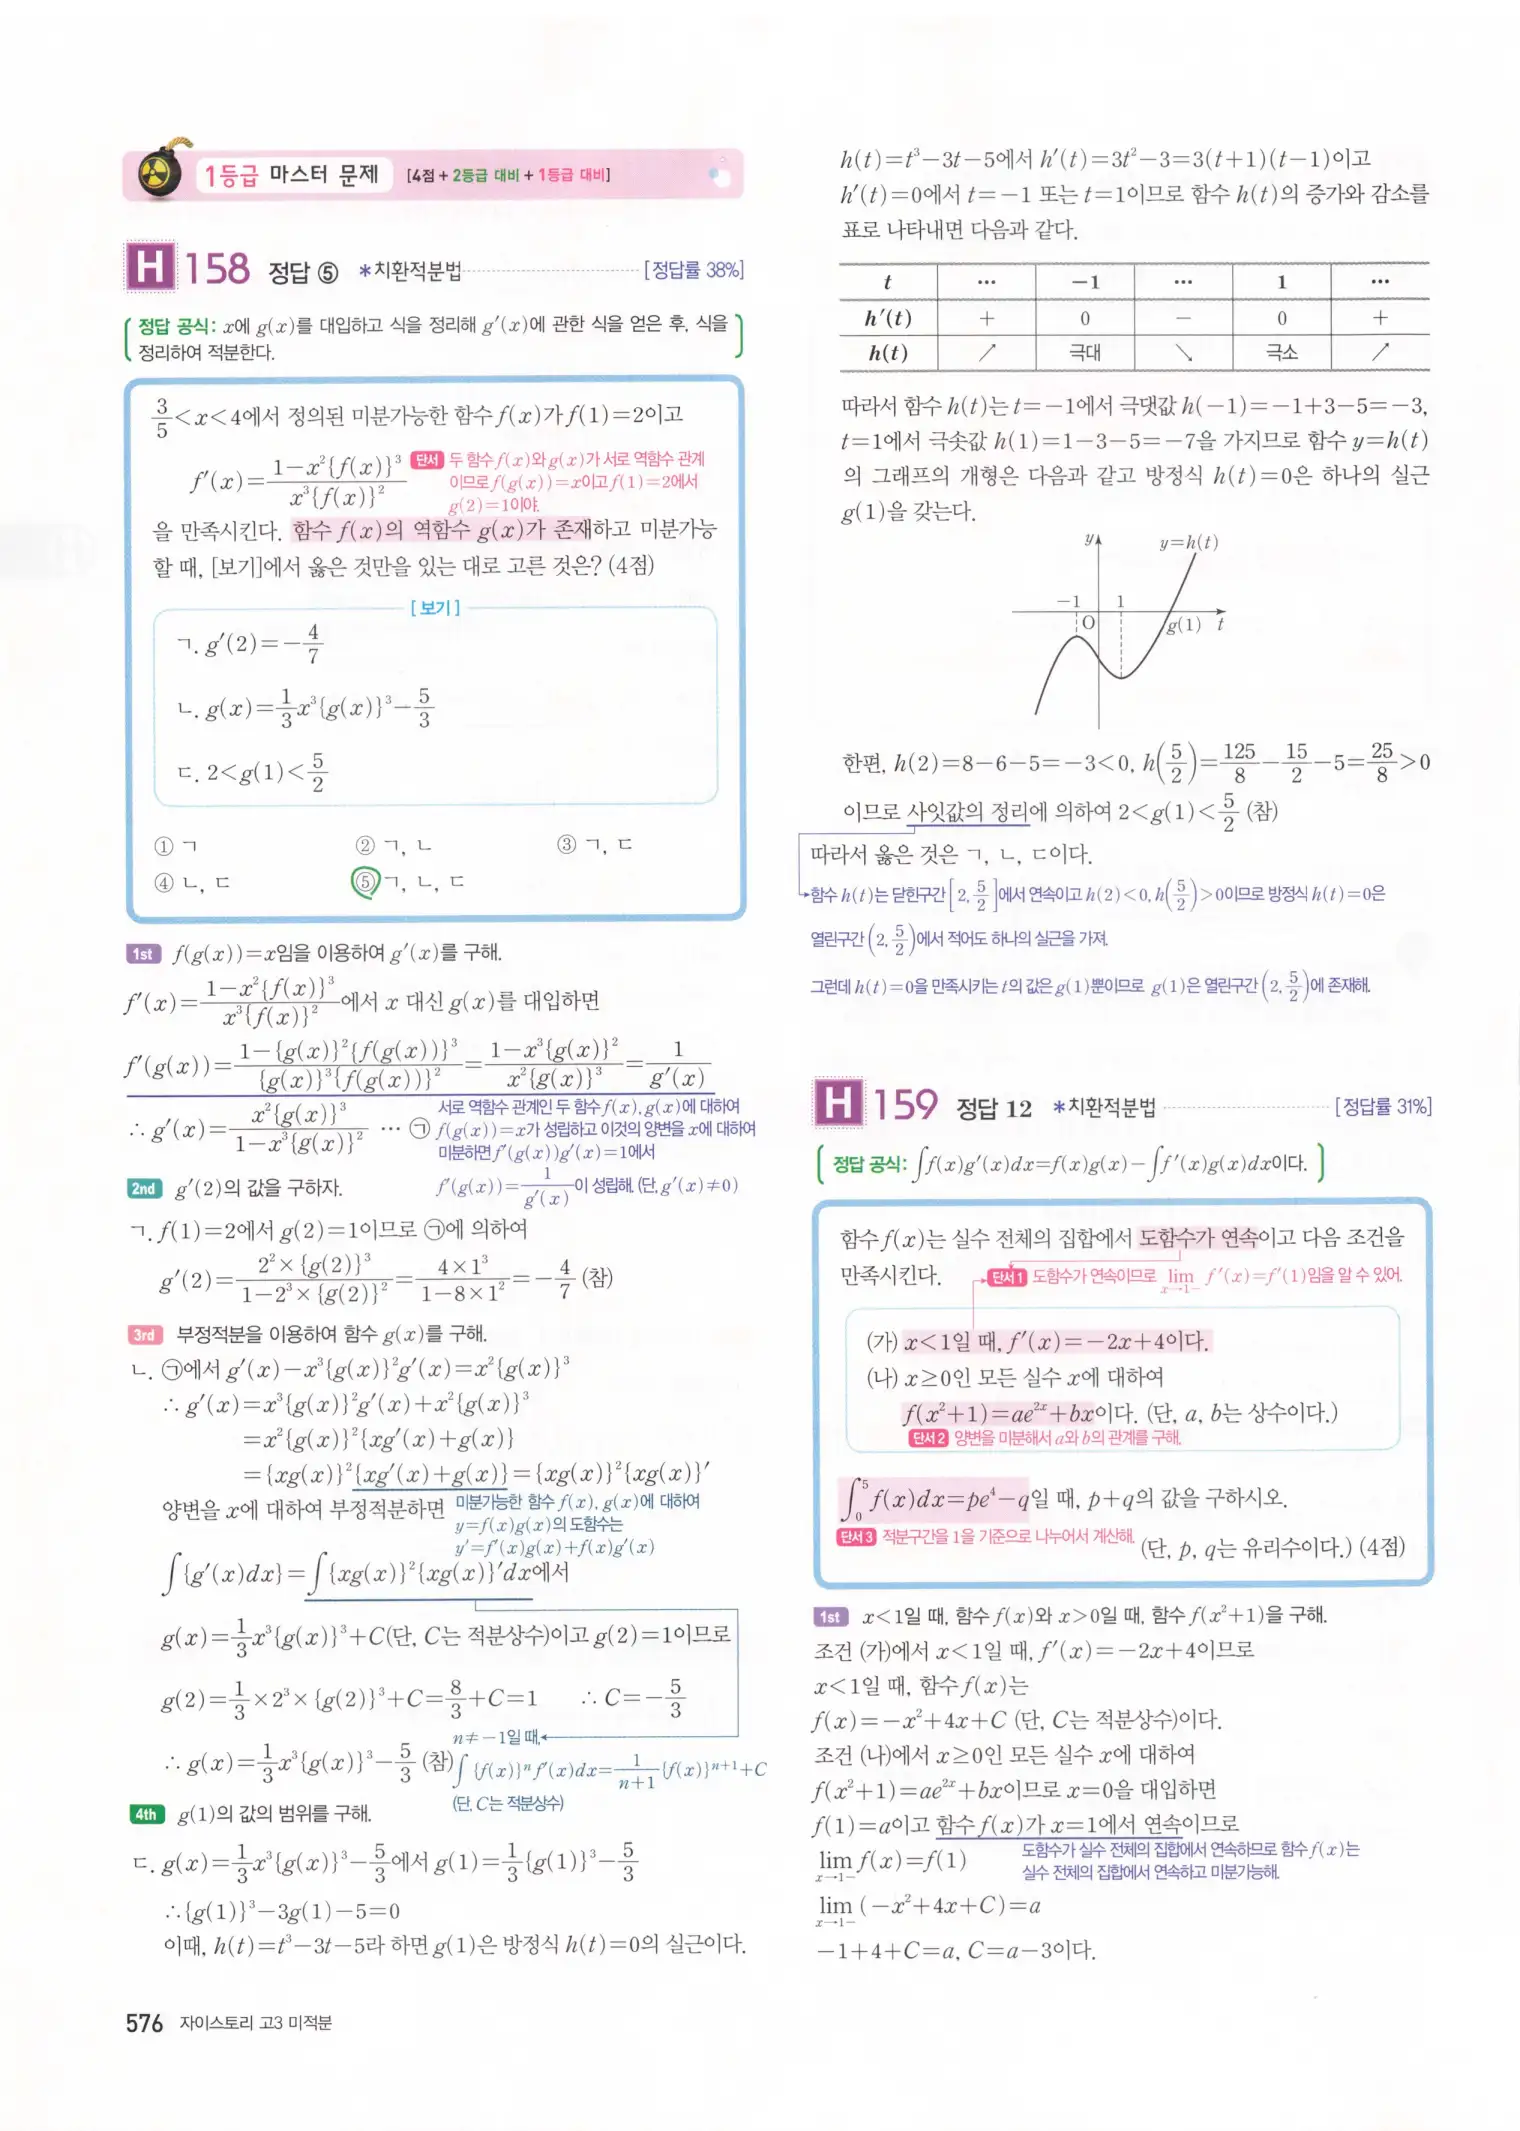 1등급 마스터 문제 [4점 + 2등급 대비 + 1등급 대비]
H 158 정답 ⑤ *치환적분법 [정답률 38%]
정답 공식: x에 g(x)를 대입하고 식을 정리해 g′(x)에 관한 식을 얻은 후, 식을
정리하여 적분한다.
3/5<x<4에서 정의된 미분가능한 함수 f(x)가 f(1)=2이고
f′(x)=(1-x²{f(x)}³)/(x³{f(x)}²)
단서 두 함수 f(x)와 g(x)가 서로 역함수 관계
이므로 f(g(x))=x이고 f(1)=2에서
g(2)=1이야.
을 만족시킨다. 함수 f(x)의 역함수 g(x)가 존재하고 미분가능
할 때, [보기]에서 옳은 것만을 있는 대로 고른 것은? (4점)
[보기]
ㄱ. g′(2)=-4/7
ㄴ. g(x)=1/3x³{g(x)}³-5/3
ㄷ. 2<g(1)<5/2
① ㄱ ② ㄱ, ㄴ ③ ㄱ, ㄷ
④ ㄴ, ㄷ ⑤ ㄱ, ㄴ, ㄷ
1st f(g(x))=x임을 이용하여 g′(x)를 구해.
f′(x)=(1-x²{f(x)}³)/(x³{f(x)}²)에서 x 대신 g(x)를 대입하면
f′(g(x))=(1-{g(x)}²{f(g(x))}³)/({g(x)}³{f(g(x))}²)=(1-x³{g(x)}²)/(x²{g(x)}³)=1/g′(x)
∴ g′(x)=(x²{g(x)}³)/(1-x³{g(x)}²) … ㉠
서로 역함수 관계인 두 함수 f(x), g(x)에 대하여
f(g(x))=x가 성립하고 이것의 양변을 x에 대하여
미분하면 f′(g(x))g′(x)=1에서
f′(g(x))=1/g′(x)이 성립해. (단, g′(x)≠0)
2nd g′(2)의 값을 구하자.
ㄱ. f(1)=2에서 g(2)=1이므로 ㉠에 의하여
g′(2)=(2²×{g(2)}³)/(1-2³×{g(2)}²)=(4×1³)/(1-8×1²)=-4/7 (참)
3rd 부정적분을 이용하여 함수 g(x)를 구해.
ㄴ. ㉠에서 g′(x)-x³{g(x)}²g′(x)=x²{g(x)}³
∴ g′(x)=x³{g(x)}²g′(x)+x²{g(x)}³
=x²{g(x)}²{xg′(x)+g(x)}
={xg(x)}²{xg′(x)+g(x)}={xg(x)}²{xg(x)}′
양변을 x에 대하여 부정적분하면
미분가능한 함수 f(x), g(x)에 대하여
y=f(x)g(x)의 도함수는
y′=f′(x)g(x)+f(x)g′(x)
∫{g′(x)dx}=∫{xg(x)}²{xg(x)}′dx에서
g(x)=1/3x³{g(x)}³+C(단, C는 적분상수)이고 g(2)=1이므로
g(2)=1/3×2³×{g(2)}³+C=8/3+C=1 ∴ C=-5/3
∴ g(x)=1/3x³{g(x)}³-5/3 (참)
n≠-1일 때,
∫{f(x)}ⁿf′(x)dx=1/(n+1){f(x)}ⁿ⁺¹+C
(단, C는 적분상수)
4th g(1)의 값의 범위를 구해.
ㄷ. g(x)=1/3x³{g(x)}³-5/3에서 g(1)=1/3{g(1)}³-5/3
∴{g(1)}³-3g(1)-5=0
이때, h(t)=t³-3t-5라 하면 g(1)은 방정식 h(t)=0의 실근이다.
h(t)=t³-3t-5에서 h′(t)=3t²-3=3(t+1)(t-1)이고
h′(t)=0에서 t=-1 또는 t=1이므로 함수 h(t)의 증가와 감소를
표로 나타내면 다음과 같다.
t … -1 … 1 …
h′(t) + 0 - 0 +
h(t) ↗ 극대 ↘ 극소 ↗
따라서 함수 h(t)는 t=-1에서 극댓값 h(-1)=-1+3-5=-3,
t=1에서 극솟값 h(1)=1-3-5=-7을 가지므로 함수 y=h(t)
의 그래프의 개형은 다음과 같고 방정식 h(t)=0은 하나의 실근
g(1)을 갖는다.
y y=h(t)
-1 1
O g(1) t
한편, h(2)=8-6-5=-3<0, h(5/2)=125/8-15/2-5=25/8>0
이므로 사잇값의 정리에 의하여 2<g(1)<5/2 (참)
따라서 옳은 것은 ㄱ, ㄴ, ㄷ이다.
함수 h(t)는 닫힌구간 [2, 5/2]에서 연속이고 h(2)<0, h(5/2)>0이므로 방정식 h(t)=0은
열린구간 (2, 5/2)에서 적어도 하나의 실근을 가져.
그런데 h(t)=0을 만족시키는 t의 값은 g(1)뿐이므로 g(1)은 열린구간 (2, 5/2)에 존재해.
H 159 정답 12 *치환적분법 [정답률 31%]
정답 공식: ∫f(x)g′(x)dx=f(x)g(x)-∫f′(x)g(x)dx이다.
함수 f(x)는 실수 전체의 집합에서 도함수가 연속이고 다음 조건을
만족시킨다.
단서1 도함수가 연속이므로 lim x→1- f′(x)=f′(1)임을 알 수 있어.
(가) x<1일 때, f′(x)=-2x+4이다.
(나) x≥0인 모든 실수 x에 대하여
f(x²+1)=ae²ˣ+bx이다. (단, a, b는 상수이다.)
단서2 양변을 미분해서 a와 b의 관계를 구해.
∫₀⁵f(x)dx=pe⁴-q일 때, p+q의 값을 구하시오.
단서3 적분구간을 1을 기준으로 나누어서 계산해.
(단, p, q는 유리수이다.) (4점)
1st x<1일 때, 함수 f(x)와 x>0일 때, 함수 f(x²+1)을 구해.
조건 (가)에서 x<1일 때, f′(x)=-2x+4이므로
x<1일 때, 함수 f(x)는
f(x)=-x²+4x+C (단, C는 적분상수)이다.
조건 (나)에서 x≥0인 모든 실수 x에 대하여
f(x²+1)=ae²ˣ+bx이므로 x=0을 대입하면
f(1)=a이고 함수 f(x)가 x=1에서 연속이므로
lim x→1- f(x)=f(1)
도함수가 실수 전체의 집합에서 연속하므로 함수 f(x)는
실수 전체의 집합에서 연속하고 미분가능해.
lim x→1- (-x²+4x+C)=a
-1+4+C=a, C=a-3이다.
576 자이스토리 고3 미적분